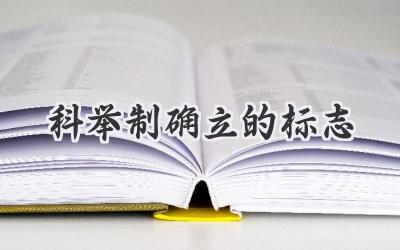 科举制确立的标志